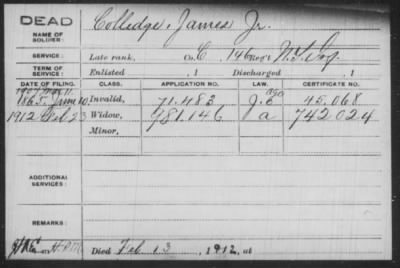 DEAD
NAME OF SOLDIER:
Colledge, James Jr.
SERVICE:
Late rank, Co. C, 146 Reg't N.Y. Inf.
TERM OF SERVICE:
Enlisted , 1 Discharged , 1
DATE OF FILING. CLASS. APPLICATION NO. LAW. CERTIFICATE NO.
1865 June 10, Invalid, 71.483 45.068
1912 Feb 23 Widow, 981.146 a 742024
Minor,
ADDITIONAL SERVICES:
REMARKS:
Died Feb 13, 1912, at